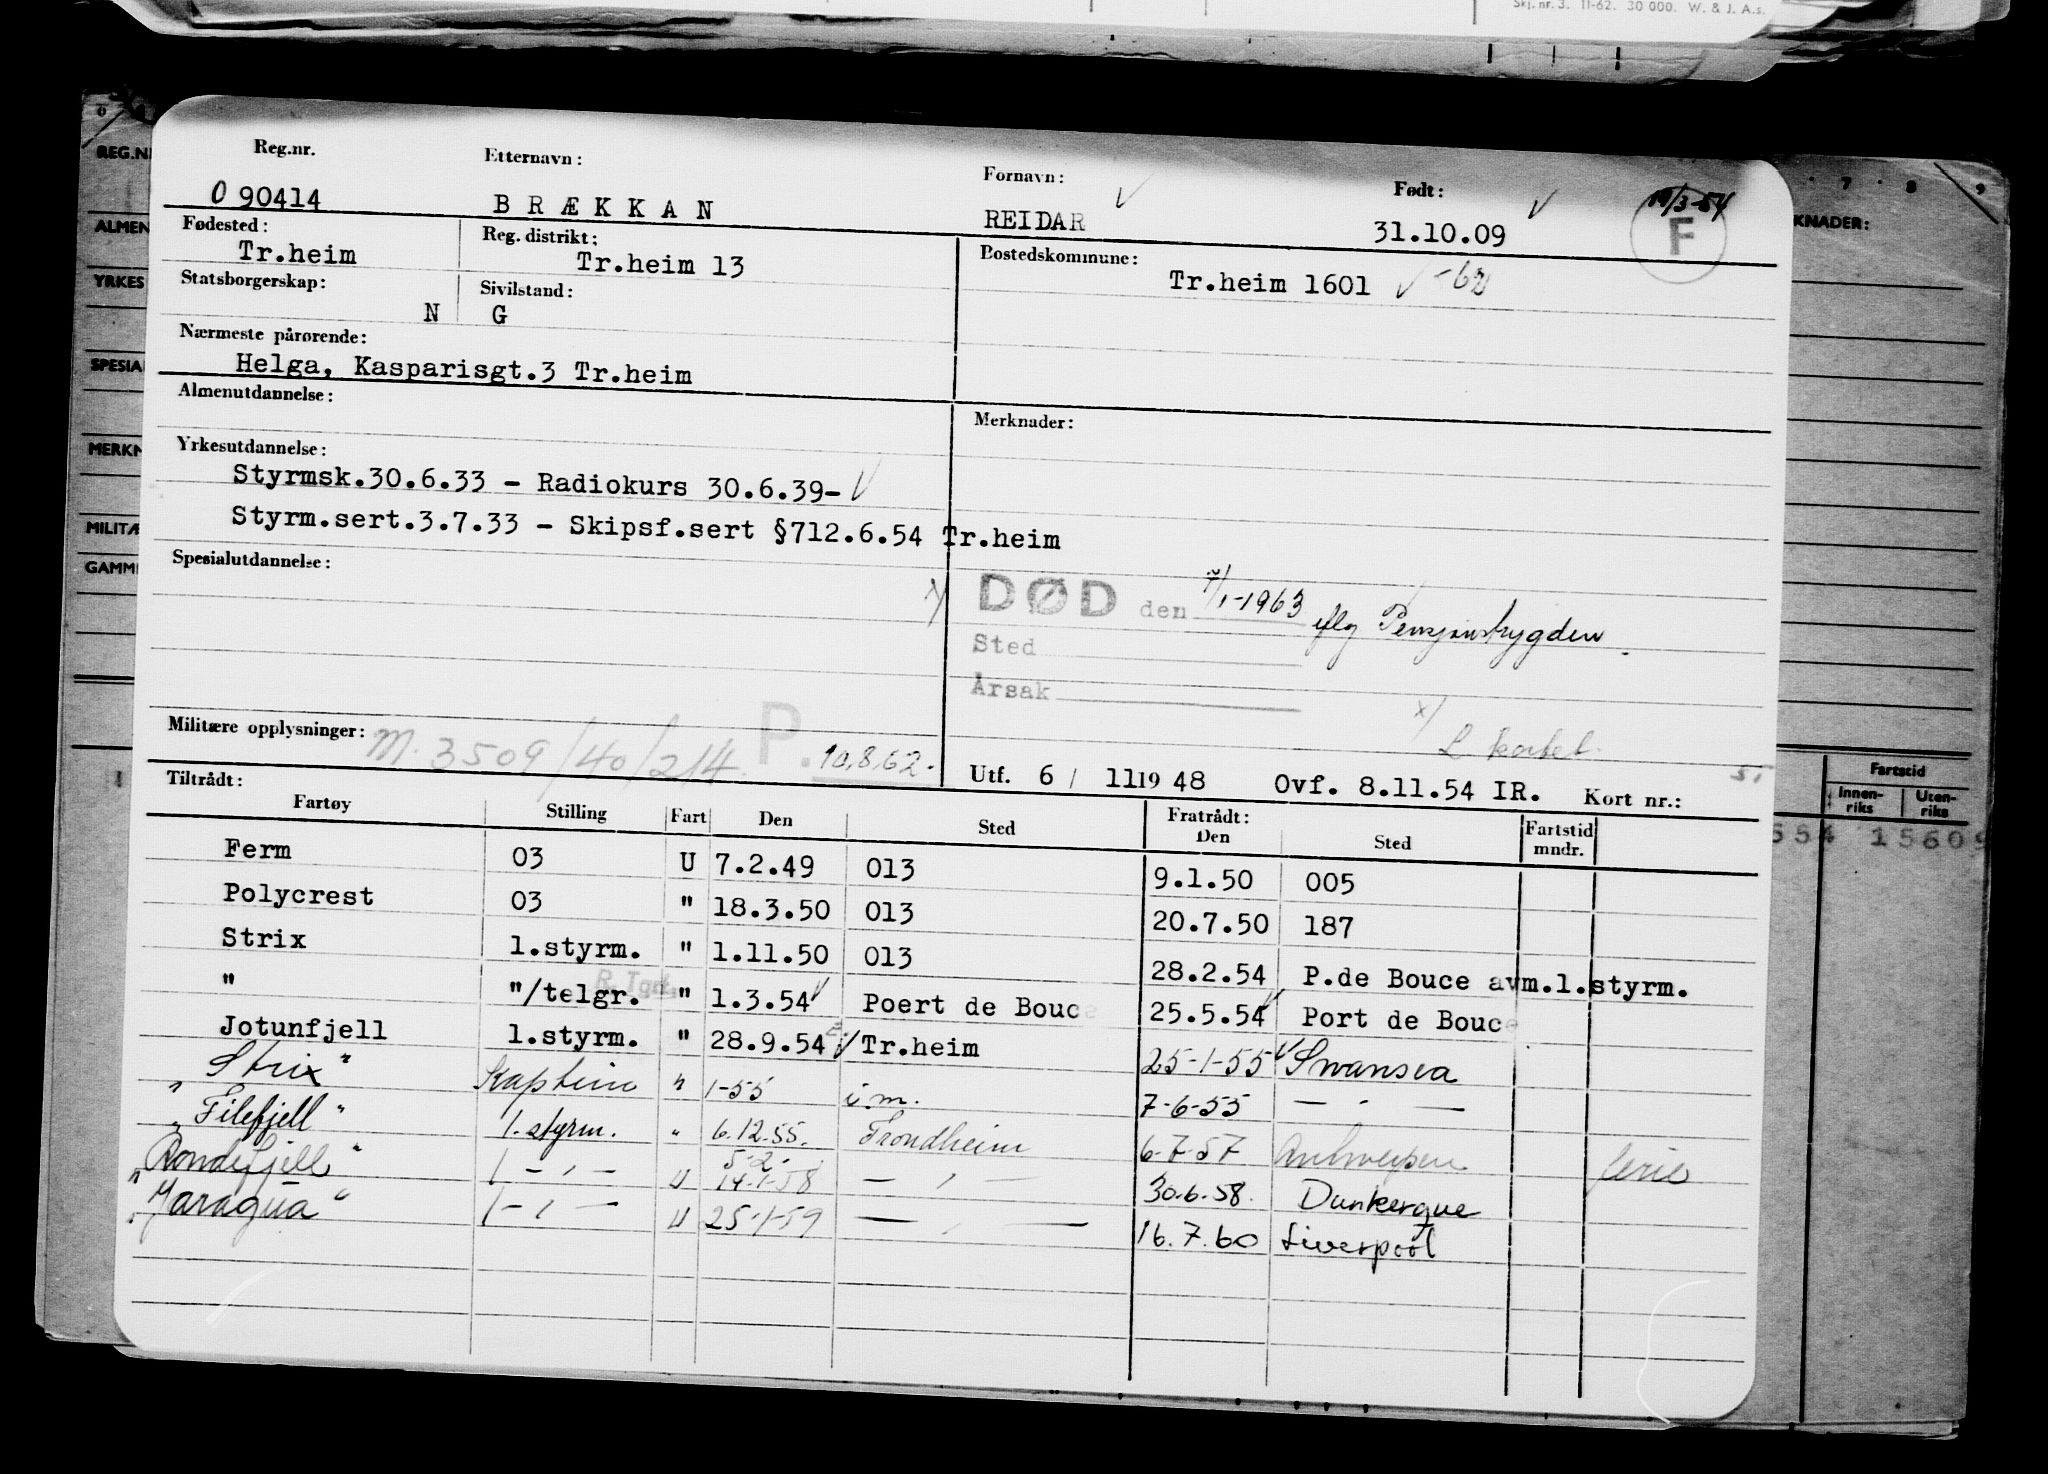 Skj. nr. 3. 11-62. 30 000. W. & J. A.s.
Reg.nr. Etternavn: Fornavn: Født: 7 8 9
REG.N 090414 BRÆKKAN REIDAR 31.10.09 F
ALMEN Fødested: Reg. distrikt: Bostedskommune: KNADER:
Tr.heim Tr.heim 13 Tr.heim 1601 -62
YRKES Statsborgerskap: Sivilstand:
N G
Nærmeste pårørende:
SPESIA Helga, Kasparisgt.3 Tr.heim
Almenutdannelse: Merknader:
MERKN Yrkesutdannelse:
Styrmsk.30.6.33 - Radiokurs 30.6.39-
MILITÆ Styrm.sert.3.7.33 - Skipsf.sert §712.6.54 Tr.heim
GAMM Spesialutdannelse:
x) DØD den /1-1963 iflg Pensjonstrygden.
Sted
Årsak
x) L kortet.
Militære opplysninger: M. 3509/40/214 P. 10.8.62.
Utf. 6 / 11 1948 Ovf. 8.11.54 IR. Kort nr.:
Tiltrådt: Fratrådt: Fartstid
Fartøy Stilling Fart Den Sted Den Sted Fartstid mndr. Innen-riks Uten-riks
Ferm 03 U 7.2.49 013 9.1.50 005 554 15609
Polycrest 03 " 18.3.50 013 20.7.50 187
Strix 1.styrm. " 1.11.50 013 28.2.54 P.de Bouce avm.1.styrm.
" "/telgr. R.Tgr. " 1.3.54 Poert de Bouce 25.5.54 Port de Bouce
Jotunfjell 1.styrm. " 28.9.54 Tr.heim 25-1-55 Swansea
Strix" Kaptein " 1-55 i.m. 7-6-55 — " —
"Filefjell" 1.styrm. " 6.12.55. Trondheim 6-7-57 Antwerpen ferie
5.2.
"Rondefjell" 1 - " - U 14-1-58 — " — 30.6.58. Dunkerque
"Yaragua" 1 - " - U 25-1-59 — " — 16.7.60 Liverpool